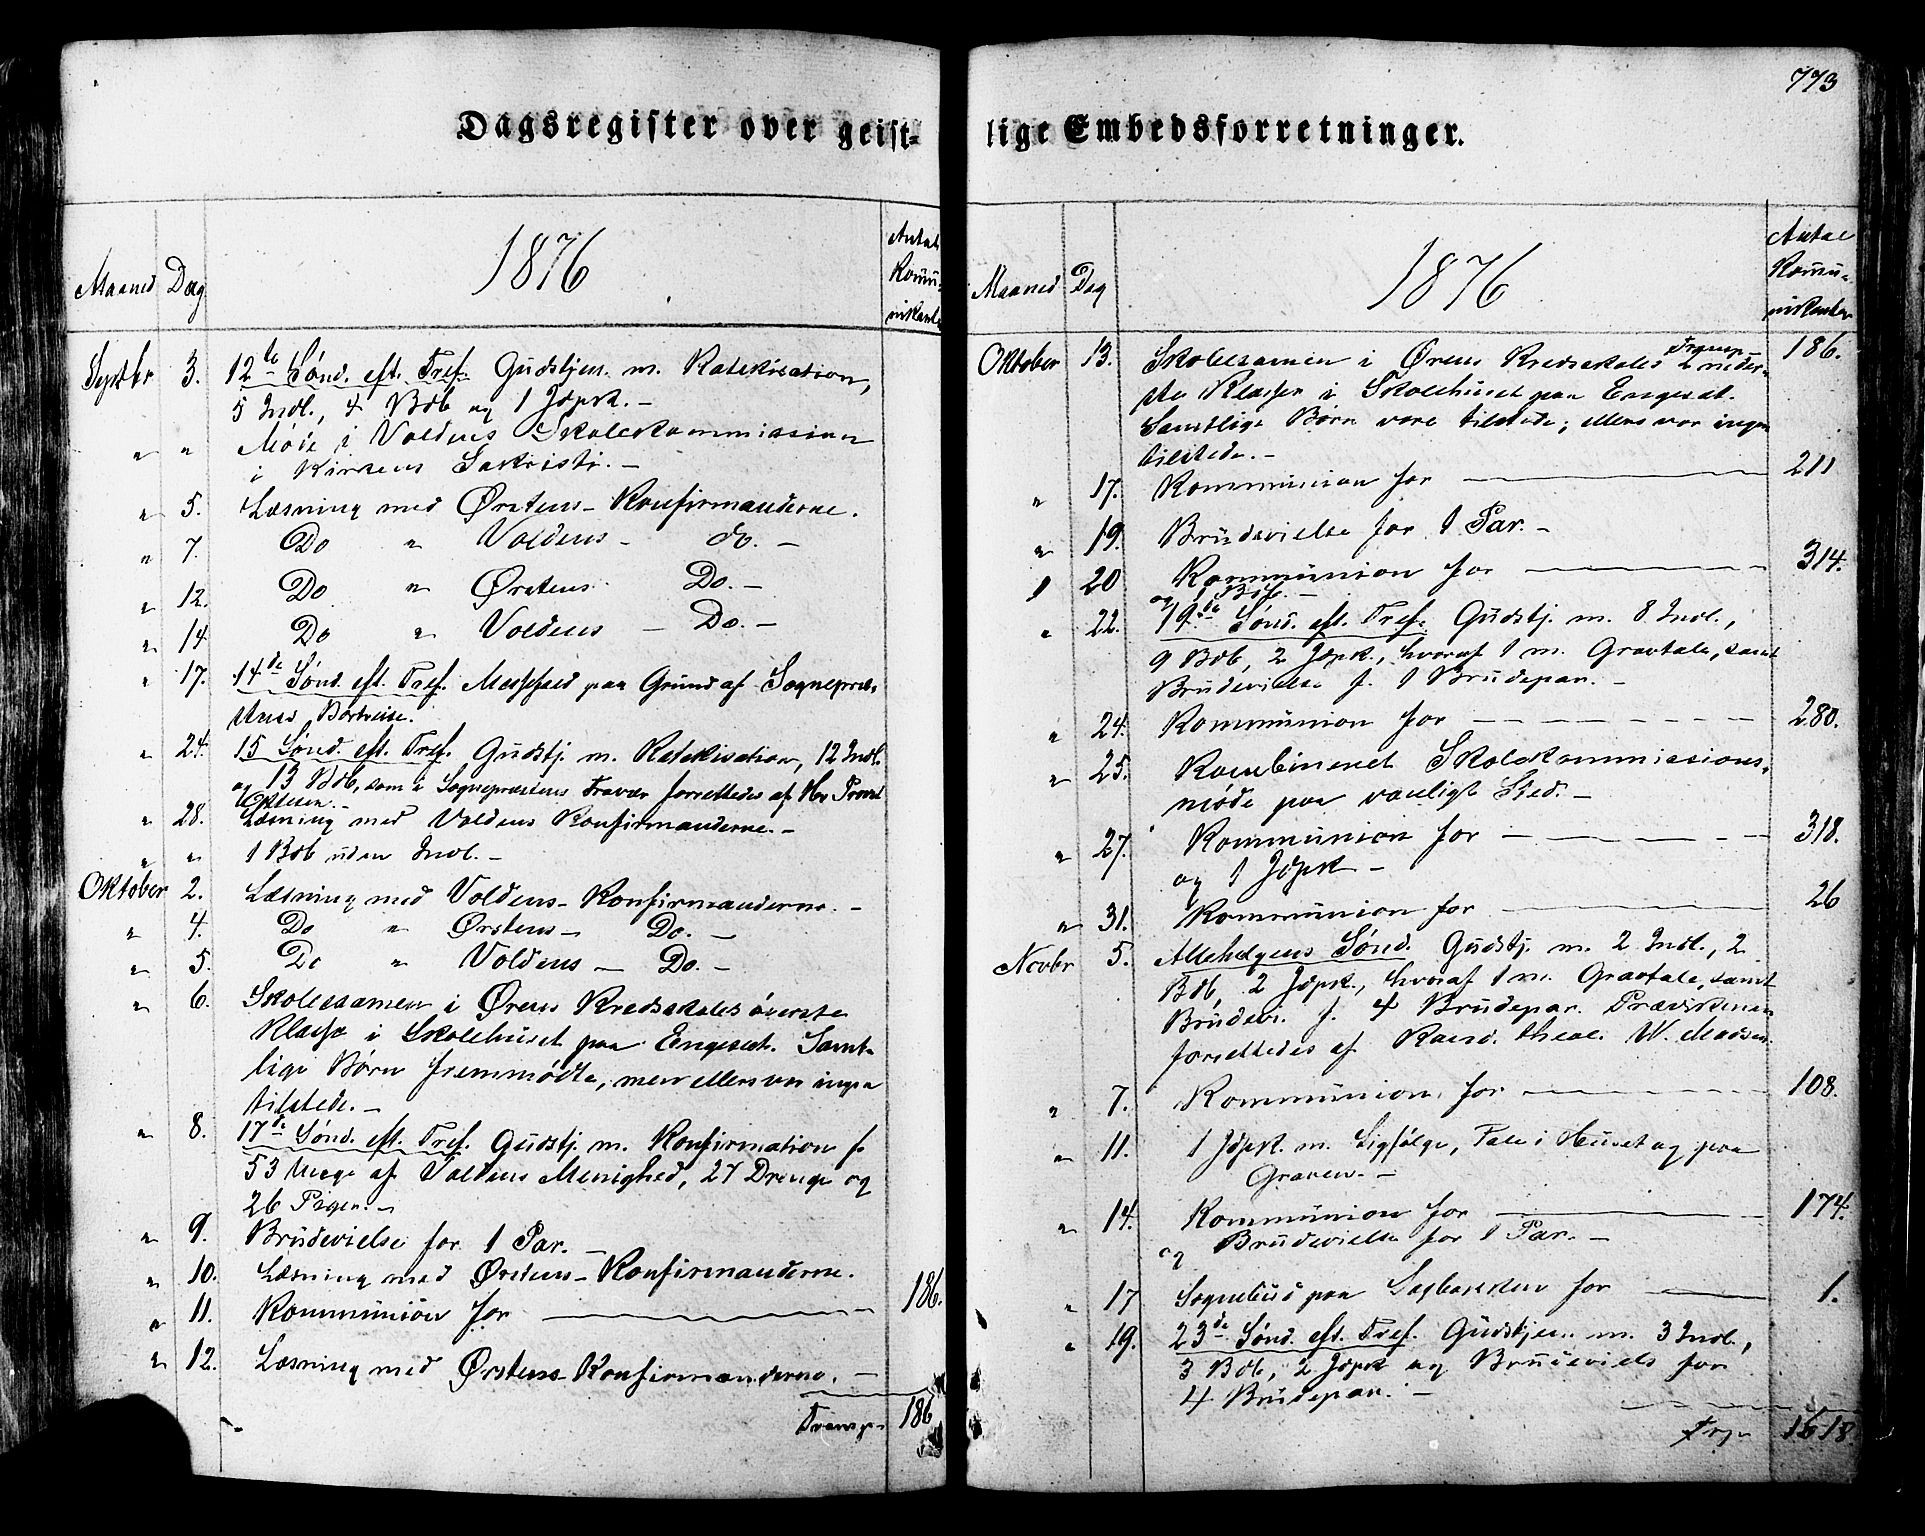 773
Dagsregister over geist-
lige Embedsforretninger.
Maaned Dag 1876 Antal Kommu-
nikanter
Septbr 3. 12te Sønd. eft. Tref. Gudstjen. m. Katekisation,
5 Indl., 4 Bdb og 1 Jdpk. -
" " Møde i Voldens Skolekommission
i Kirkens Sakristi. -
" 5. Læsning med Ørstens-Konfirmanderne.
" 7. Do " Voldens - do. -
" 12. Do " Ørstens Do. -
" 14 Do " Voldens - Do. -
" 17. 14de Sønd. eft. Tref. Messefald paa Grund af Sognepræ-
stens Bortreise.
" 24. 15 Sønd. eft. Tref. Gudstj. m. Katekisation, 12 Indl.
og 13 Bdb, som i Sognepræstens Fravær forrettedes af Hr Provst
" 28. Læsning med Voldens Konfirmanderne. -
" " 1 Bdb uden Indl. -
Oktober 2. Læsning med Voldens-Konfirmanderne. -
" 4. Do " Ørstens - Do. -
" 5. Do " Voldens - Do. -
" 6. Skoleexamen i Ørens Kredsskoles øverste
Klasse i Skolehuset paa Engeset. Samt-
lige Børn fremmødte, men ellers var ingen
tilstede. -
" 8. 17de Sønd. eft. Tref. Gudstj. m. Konfirmation f.
53 Unge af Voldens Menighed, 27 Drenge og
26 Piger. -
" 9. Brudevielse for 1 Par. -
" 10. Læsning med Ørstens-Konfirmanderne.
" 11. Kommunion for 186.
" 12. Læsning med Ørstens-Konfirmanderne. -
Transp. 186
Maaned Dag 1876 Antal
Kommu-
nikanter
Transp. 186.
Oktober 13. Skoleexamen i Ørens Kredsskoles 2 neder-
ste Klasser i Skolehuset paa Engeset.
Samtlige Børn vare tilstede; ellers var ingen
tilstede. -
" 17. Kommunion for 211
" 19. Brudevielse for 1 Par. -
" 20 Kommunion for 314.
og 1 Bdb. -
" 22. 19de Sønd. eft. Tref. Gudstj. m. 8 Indl.,
9 Bdb, 2 Jdpk., hvoraf 1 m. Gravtale, samt
Brudevielse f. 1 Brudepar. -
" 24. Kommunion for 280.
" 25. Kombineret Skolekommissions-
møde paa vanligt Sted. -
" 27. Kommunion for 318.
og 1 Jdpk -
" 31. Kommunion for 26
Novbr 5. Allehelgens Sønd. Gudstj. m. 2 Indl., 2
Bdb, 2 Jdpk., hvoraf 1 m. Gravtale, samt
Brudevi. f. 4 Brudepar. Prædikenen
forrettedes af Kand. theol. W. Madsen.
" 7. Kommunion for 108.
" 11. 1 Jdpk m. Ligfølge, Tale i Huset og paa
Graven. -
" 14. Kommunion for 174.
og Brudevielse for 1 Par. -
" 17 Sognebud paa for 1.
" 19. 23de Sønd. eft. Tref. Gudstjen. m. 3 Indl.,
3 Bdb, 2 Jdpk og Brudeviels for
4 Brudepar. -
Trsp. 1618